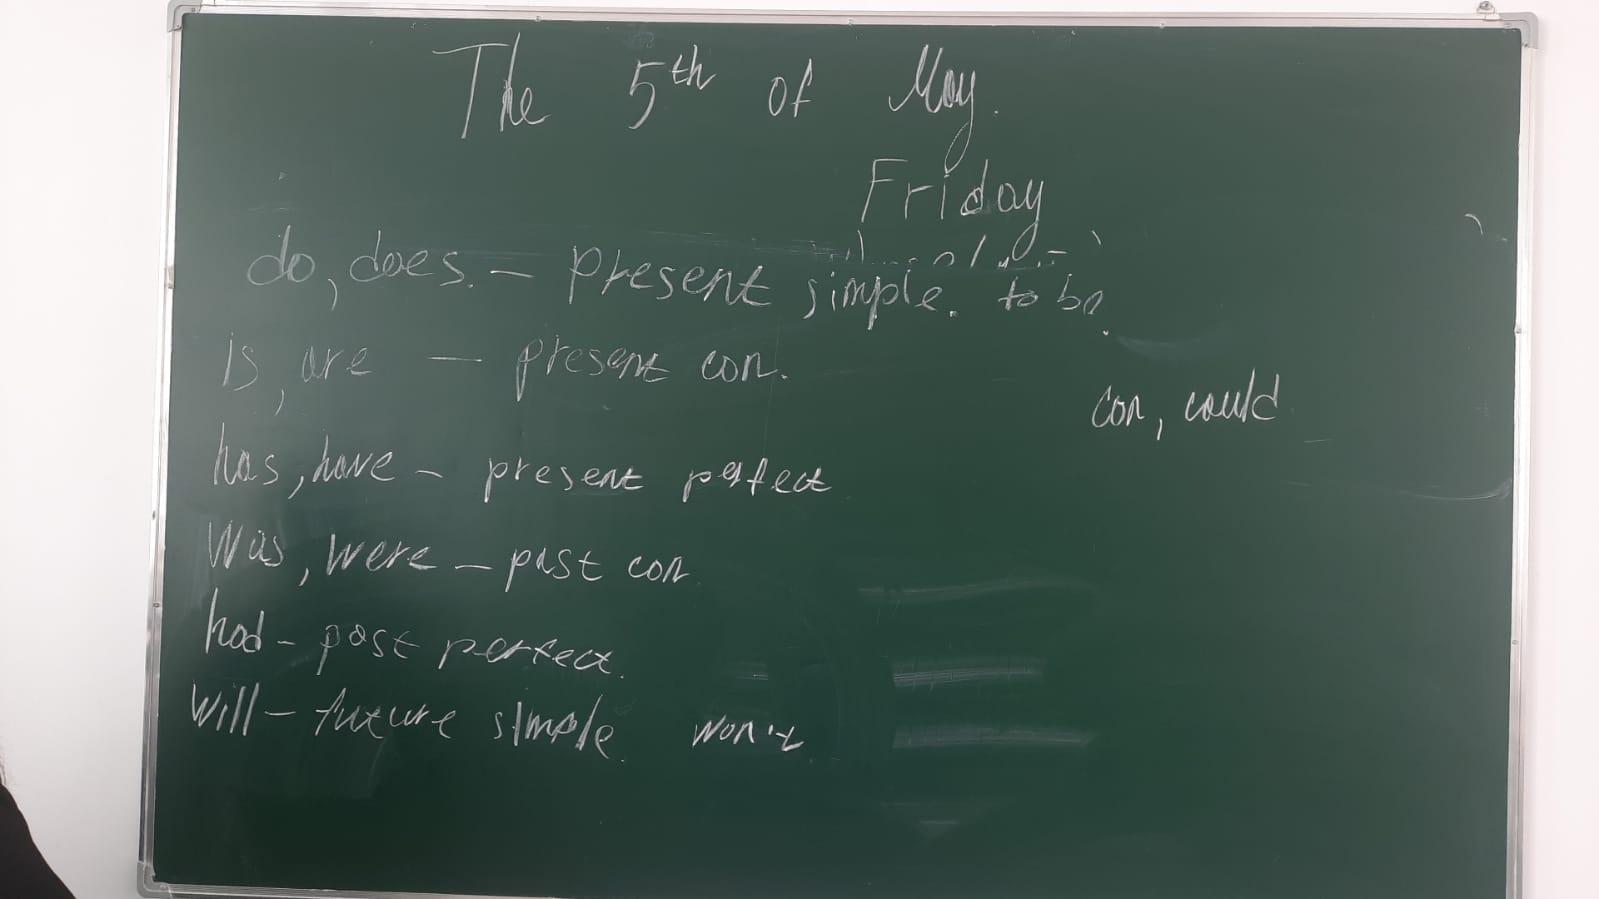 The 5th of May.
Friday
do, does. — present simple. to be.
is, are — present con.
can, could
has, have — present perfect
was, were — past con
had — past perfect.
will — future simple. won't